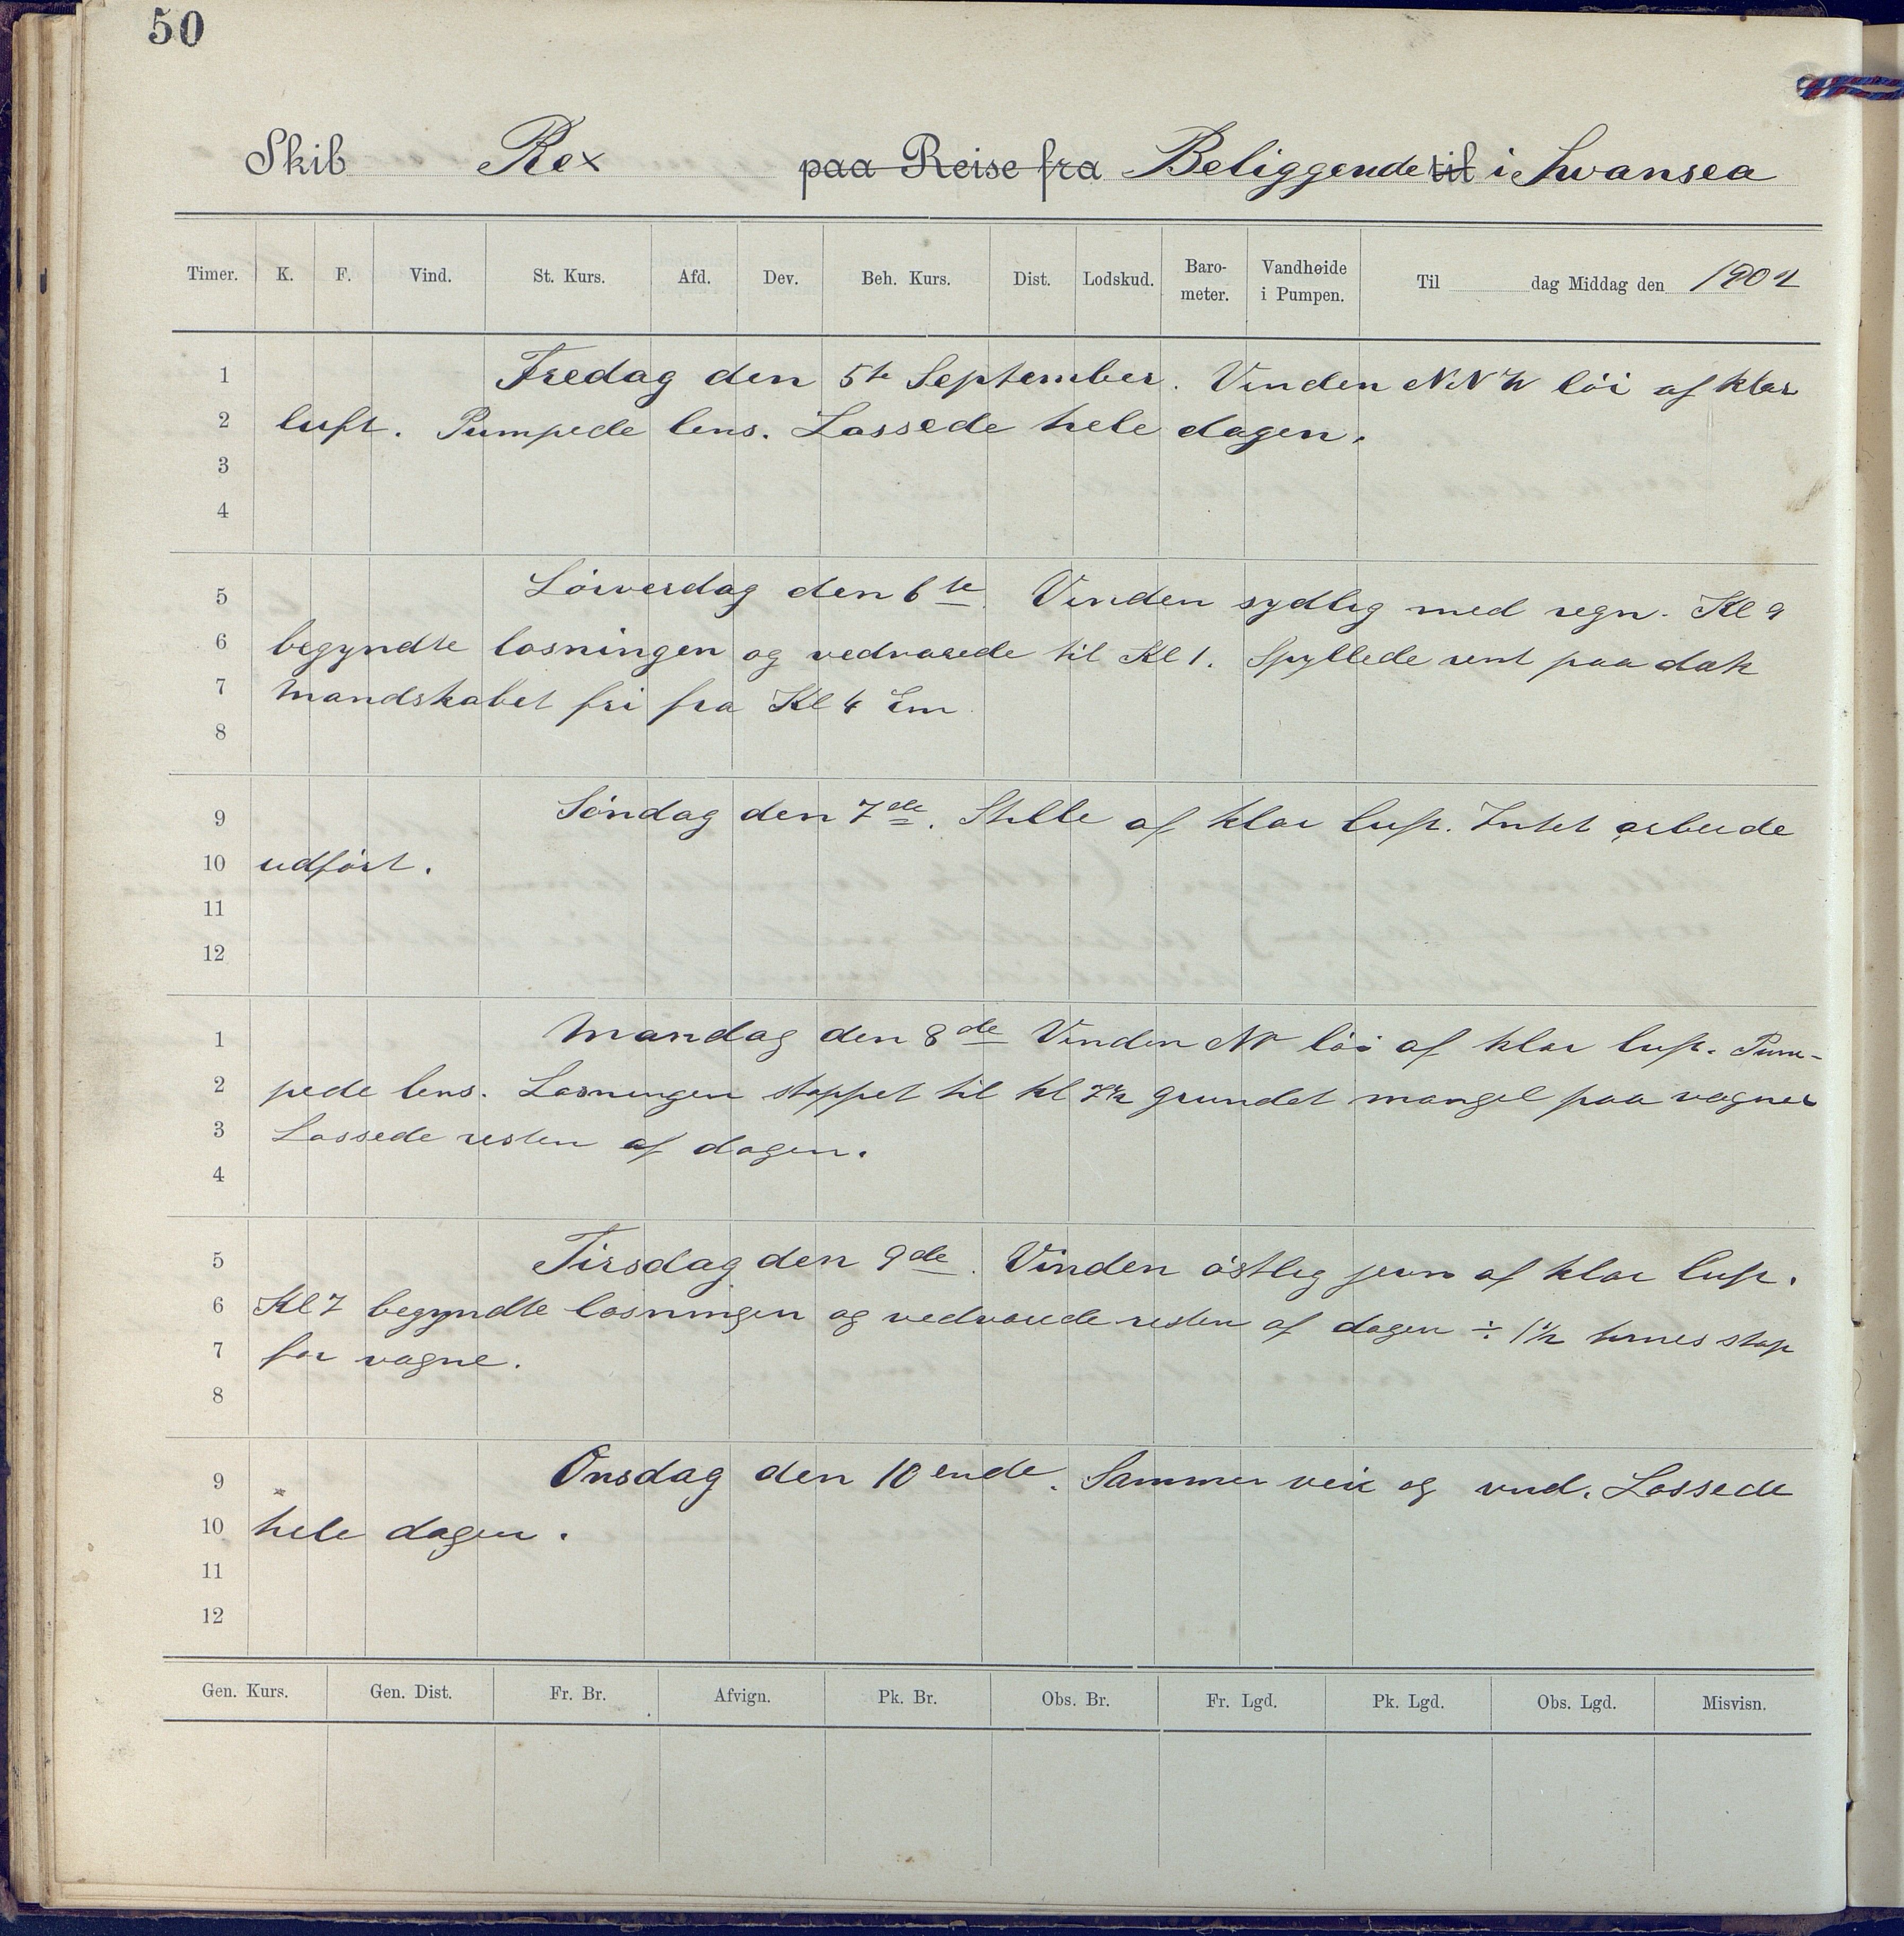 50
Skib Rex paa Reise fra Beliggende til i Swansea
Timer. K. F. Vind. St. Kurs. Afd. Dev. Beh. Kurs. Dist. Lodskud. Baro-meter. Vandhøide i Pumpen. Til dag Middag den 1902
1 Fredag den 5te September. Vinden NNW löi af klar
2 luft. Pumpede lens. Lossede hele dagen.
3
4
5 Löiverdag den 6te. Vinden sydlig med regn. Kl 9
6 begyndte losningen og vedvarede til Kl 1. Spyllede rent paa dæk
7 Mandskabet fri fra Kl 4 Em
8
9 Söndag den 7de. Stille af klar luft. Intet arbeide
10 udfört.
11
12
1 Mandag den 8de Vinden NW löi af klar luft. Pum-
2 pede lens. Losningen stoppet til kl 7½ grundet mangel paa vagner
3 Lossede resten af dagen.
4
5 Tirsdag den 9de. Vinden östlig jevn af klar luft.
6 Kl 7 begyndte losningen og vedvarede resten af dagen ÷ 1½ times stop
7 for vagne.
8
9 Onsdag den 10ende. Sammen veir og vind. Lossede
10 hele dagen.
11
12
Gen. Kurs. Gen. Dist. Fr. Br. Afvign. Pk. Br. Obs. Br. Fr. Lgd. Pk. Lgd. Obs. Lgd. Misvisn.